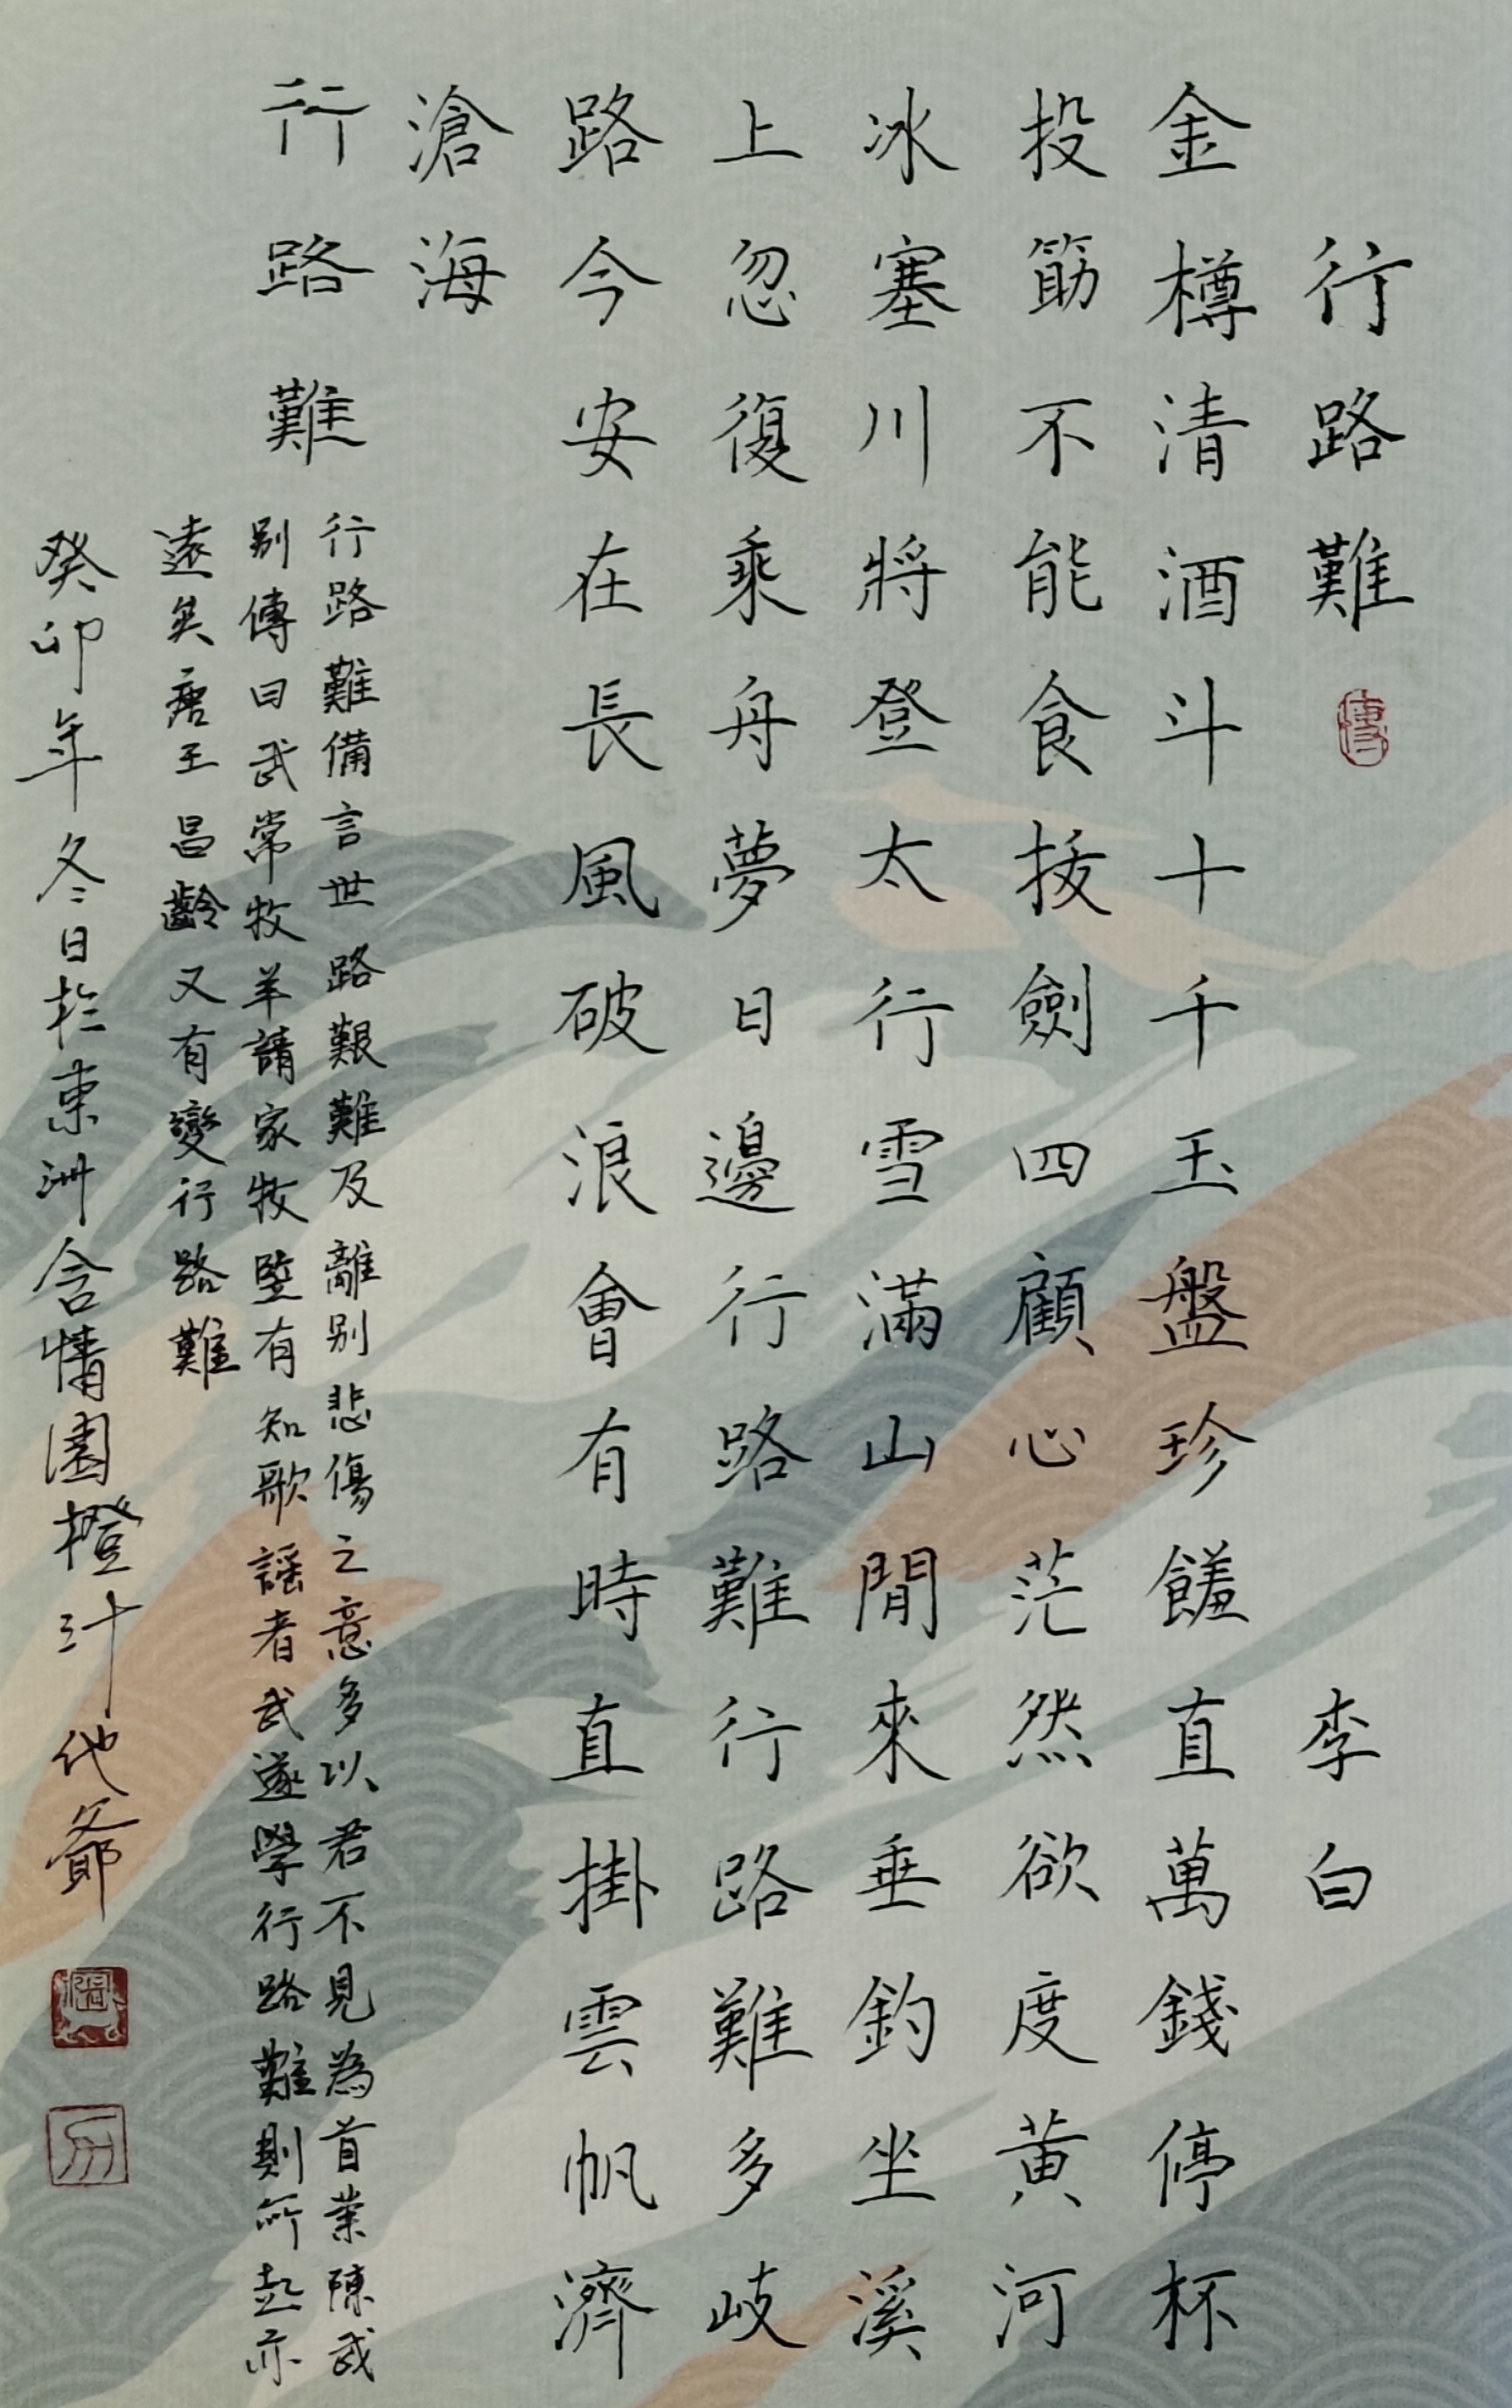 行路難 李白
金樽清酒斗十千玉盤珍饈直萬錢停杯
投筯不能食拔劍四顧心茫然欲度黃河
冰塞川將登太行雪滿山閒來垂釣坐溪
上忽復乘舟夢日邊行路難行路難多岐
路今安在長風破浪會有時直掛雲帆濟
滄海
行路難
行路難備言世路艱難及離別悲傷之意多以君不見為首業陳武
別傳曰武常牧羊諸家牧豎有知歌謠者武遂學行路難則所起亦
遠矣唐王昌齡又有變行路難
癸卯年冬日於東洲含情園橙汁他爺